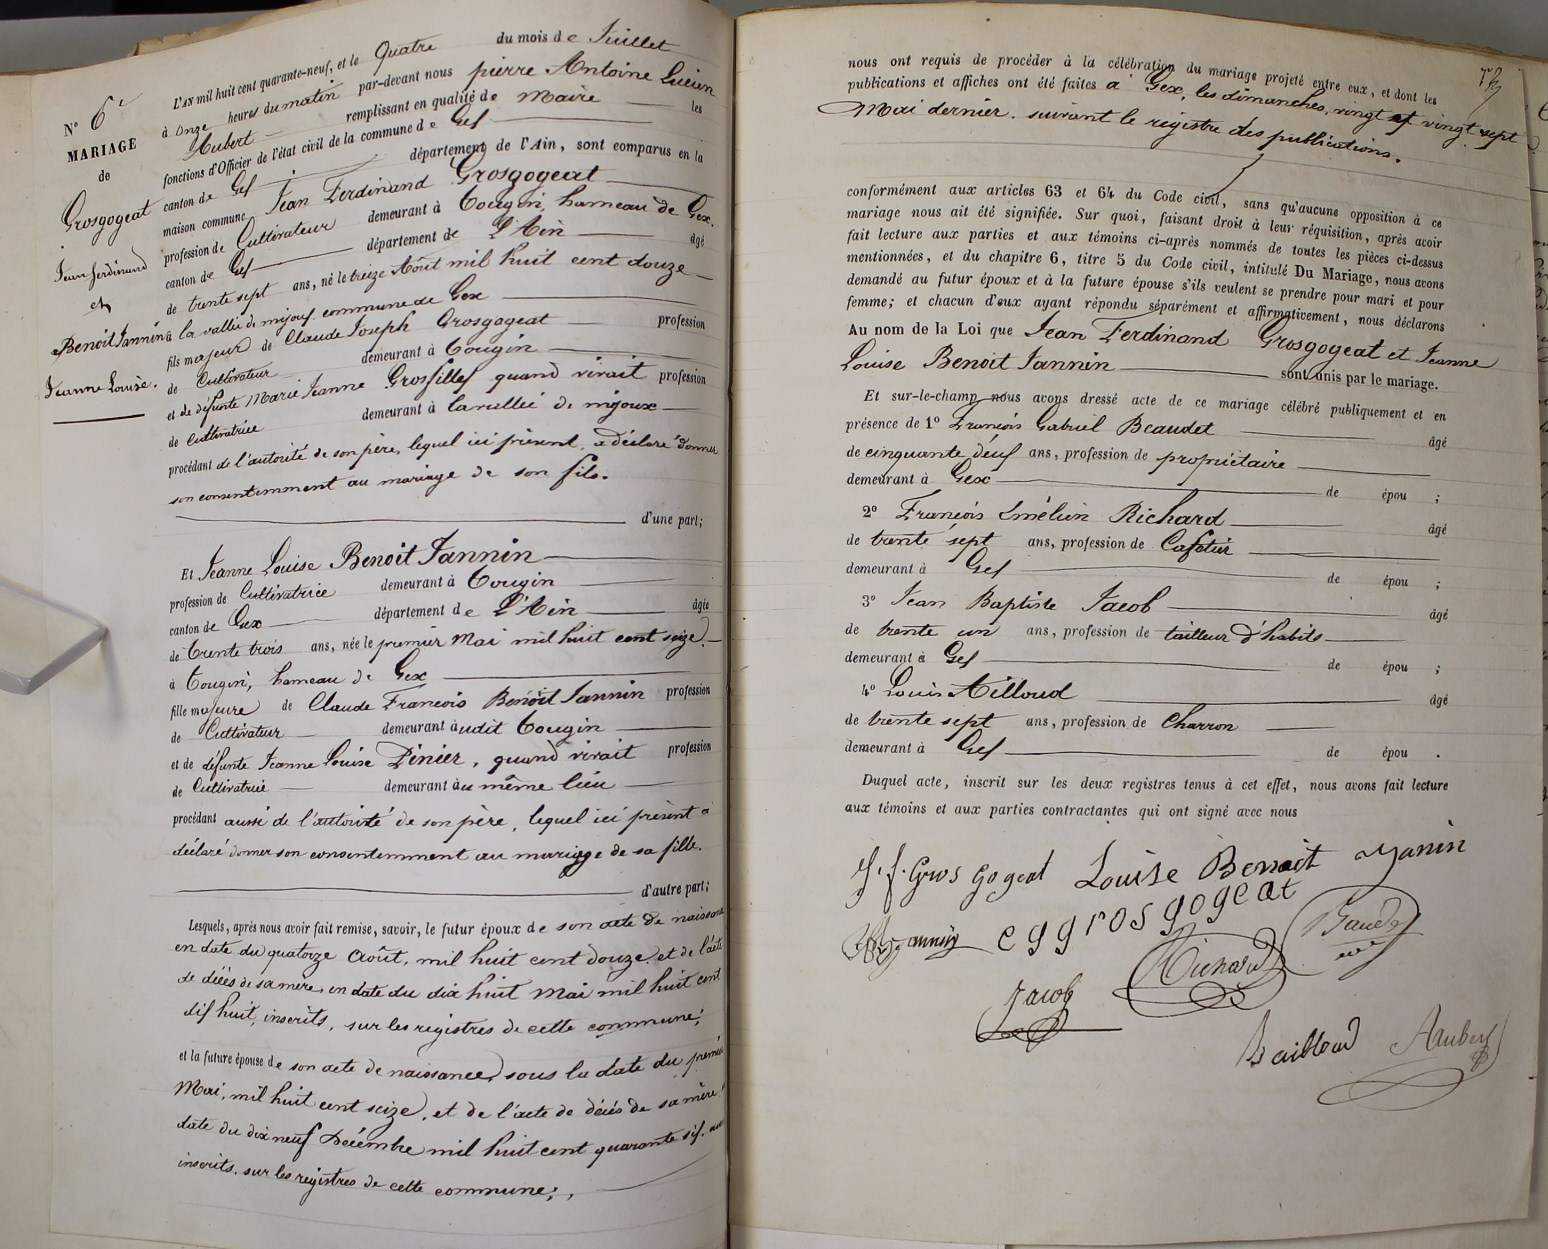 N° 6e
MARIAGE
de
Grosgogeat
Jean ferdinand
et
Benoit Jannin
Jeanne Louise.
L'AN mil huit cent quarante-neuf, et le Quatre du mois de Juillet
à onze heures du matin par-devant nous pierre Antoine Lucien
Aubert remplissant en qualité de Maire les
fonctions d'Officier de l'état civil de la commune de Gex
canton de Gex département de l'Ain, sont comparus en la
maison commune Jean Ferdinand Grosgogeat
profession de Cultivateur demeurant à Tougin, hameau de Gex.
canton de Gex département de L'Ain âgé
de trente sept ans, né le treize Août mil huit cent douze
à la vallée de mijoux commune de Gex
fils majeur de Claude Joseph Grosgogeat profession
de Cultivateur demeurant à Tougin
et de défunte Marie Jeanne Grosfilley quand vivait profession
de Cultivatrice demeurant à la vallée de mijoux
procédant de l'autorité de son père, lequel ici présent, a déclaré donner
son consentemment au mariage de son fils.
d'une part;
Et Jeanne Louise Benoit Jannin
profession de Cultivatrice demeurant à Tougin
canton de Gex département de L'Ain âgée
de trente trois ans, née le premier Mai mil huit cent seize.
à Tougin, hameau de Gex
fille majeure de Claude François Benoit Jannin profession
de Cultivateur demeurant audit Tougin
et de défunte Jeanne Louise Dinier, quand vivait profession
de Cultivatrice demeurant au même lieu
procédant aussi de l'autorité de son père, lequel ici présent a
déclaré donner son consentemment au mariage de sa fille.
d'autre part;
Lesquels, après nous avoir fait remise, savoir, le futur époux de son acte de naissance
en date du quatorze Août, mil huit cent douze et de l'acte
de décès de sa mère, en date du dix huit Mai mil huit cent
dix huit, inscrits, sur les registres de cette commune;
et la future épouse de son acte de naissance, sous la date du premier
Mai, mil huit cent seize, et de l'acte de décès de sa mère
date du dix neuf Décembre mil huit cent quarante six.
inscrits, sur les registres de cette commune;
nous ont requis de procéder à la célébration du mariage projeté entre eux, et dont les
publications et affiches ont été faites à Gex, les dimanches, vingt et vingt sept
Mai dernier. suivant le registre des publications.
conformément aux articles 63 et 64 du Code civil, sans qu'aucune opposition à ce
mariage nous ait été signifiée. Sur quoi, faisant droit à leur réquisition, après avoir
fait lecture aux parties et aux témoins ci-après nommés de toutes les pièces ci-dessus
mentionnées, et du chapitre 6, titre 5 du Code civil, intitulé Du Mariage, nous avons
demandé au futur époux et à la future épouse s'ils veulent se prendre pour mari et pour
femme; et chacun d'eux ayant répondu séparément et affirmativement, nous déclarons
Au nom de la Loi que Jean Ferdinand Grosgogeat et Jeanne
Louise Benoit Jannin sont unis par le mariage.
Et sur-le-champ nous avons dressé acte de ce mariage célébré publiquement et en
présence de 1° François Gabriel Beaudet âgé
de cinquante deux ans, profession de propriétaire
demeurant à Gex de épou ;
2° François Emélien Richard âgé
de trente sept ans, profession de Cafetier
demeurant à Gex de épou ;
3° Jean Baptiste Jacob âgé
de trente un ans, profession de tailleur d'habits
demeurant à Gex de épou ;
4° Louis Ailloud âgé
de trente sept ans, profession de Charron
demeurant à Gex de épou .
Duquel acte, inscrit sur les deux registres tenus à cet effet, nous avons fait lecture
aux témoins et aux parties contractantes qui ont signé avec nous
J. f. Gros gogeat Louise Benoit Yanin
cggrosgogeat Baudet
Richard
Jacob
Aubert